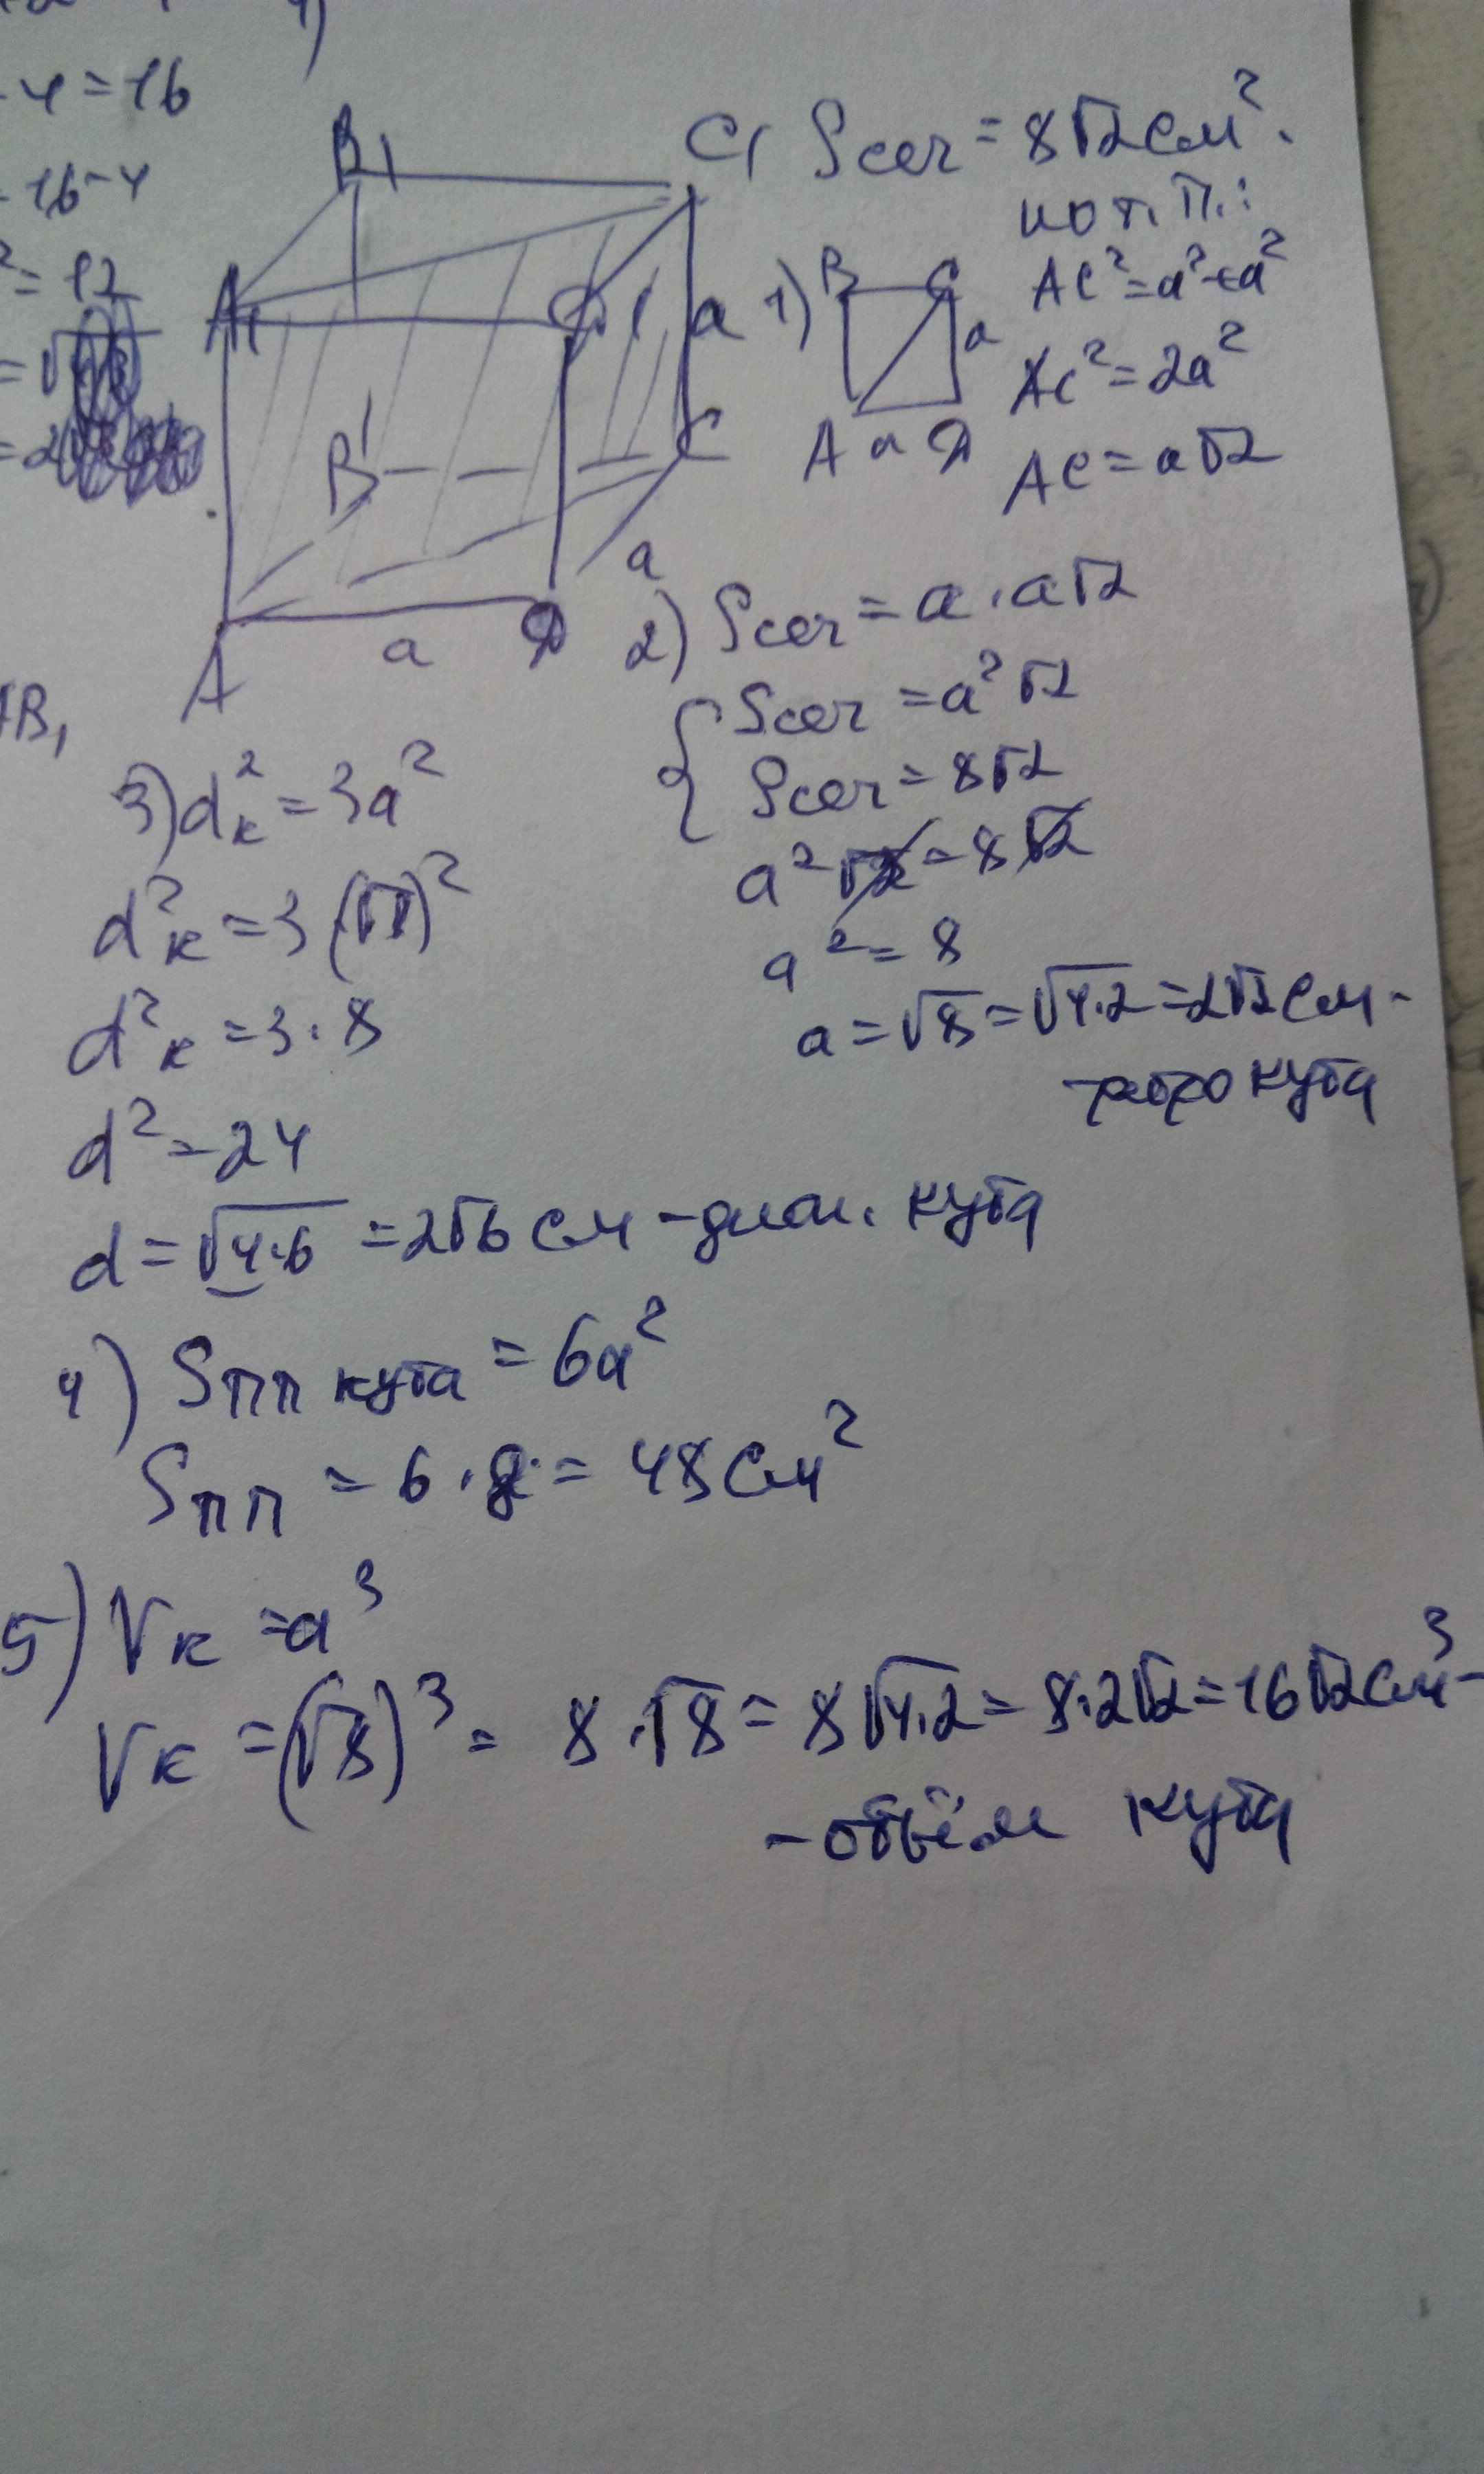 4)
4 = 16
= 16 - 4
² = 12
B₁
C₁
Sсеч = 8√2 см².
по т. П.:
A₁
D₁
a
1)
B
C
a
AC² = a² + a²
AC² = 2a²
B
C
A
a
D
AC = a√2
a
A
a
D
2) Sсеч = a · a√2
B₁
{ Sсеч = a²√2
Sсеч = 8√2
a²√2 = 8√2
a² = 8
a = √8 = √4·2 = 2√2 см -
- ребро куба
3) dк² = 3a²
dк² = 3(√8)²
dк² = 3 · 8
d² = 24
d = √4·6 = 2√6 см - диаг. куба
4) Sпп куба = 6a²
Sпп = 6 · 8 = 48 см²
5) Vк = a³
Vк = (√8)³ = 8 · √8 = 8√4·2 = 8·2√2 = 16√2 см³ -
- объём куба